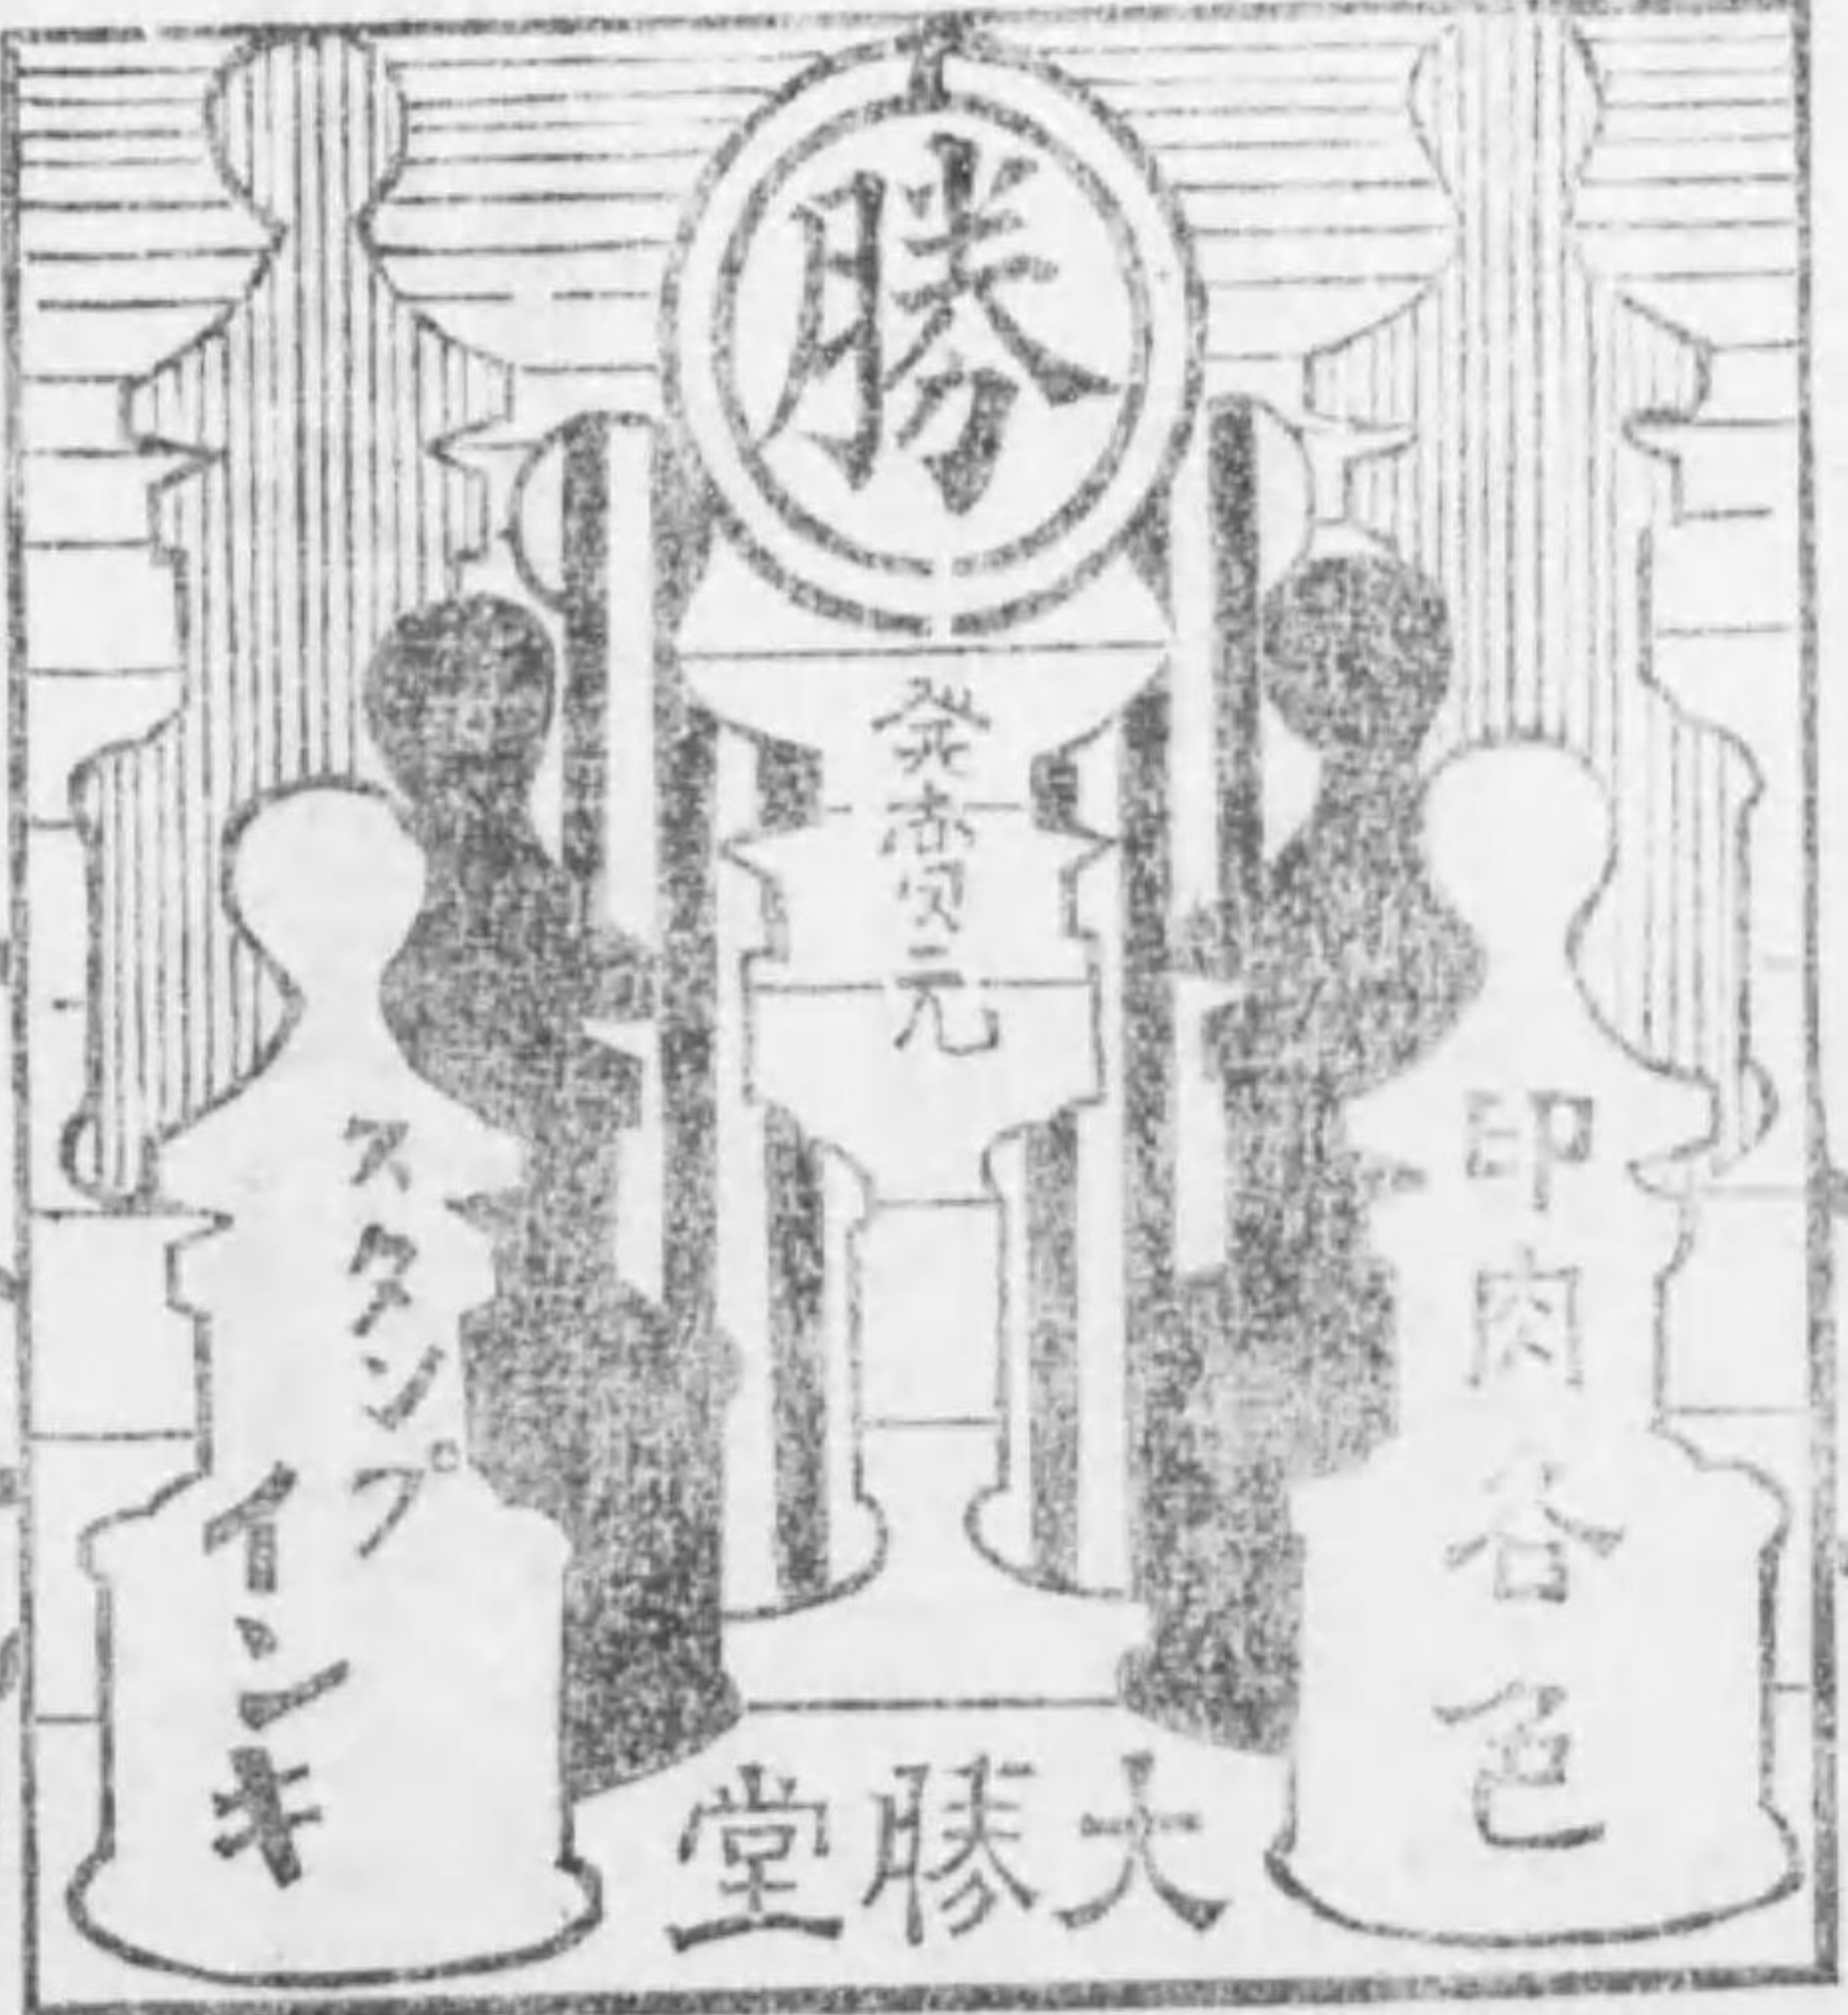 勝
発賣元
印肉各色
スタンプ
インキ
大勝堂